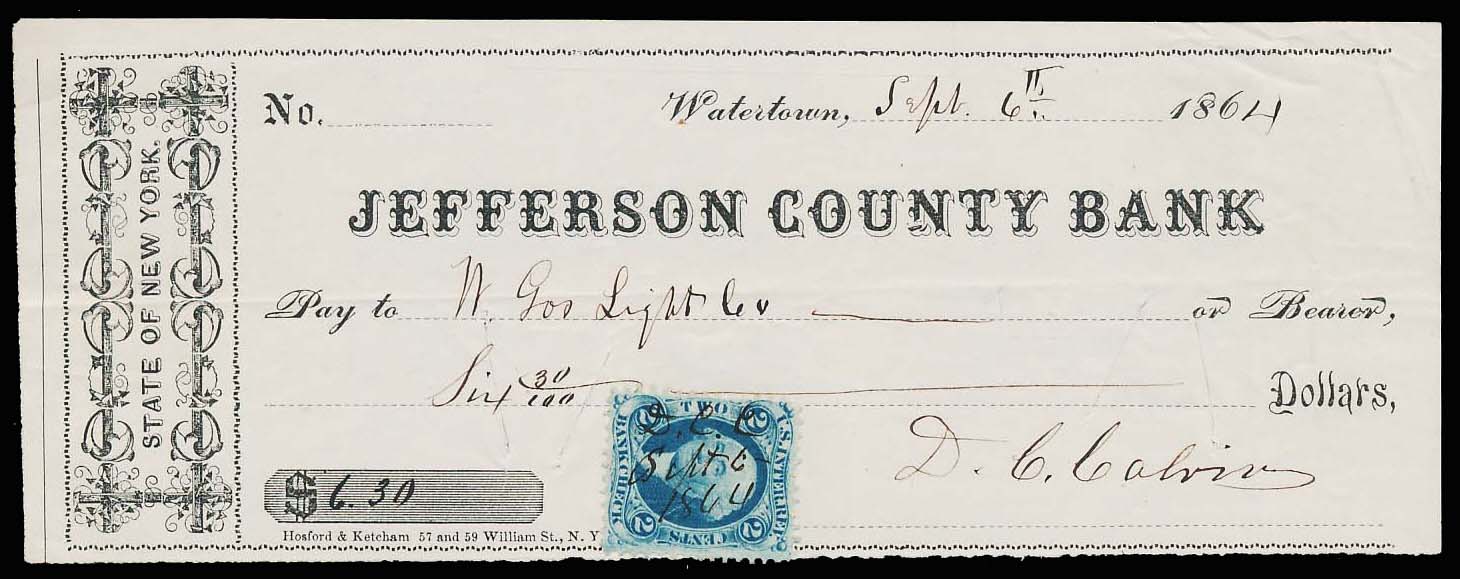 STATE OF NEW YORK.
No. Watertown, Sept. 6th 1864
JEFFERSON COUNTY BANK
Pay to W. Gas Light Co or Bearer,
Six 30/100 Dollars,
D. C. Calvin
$ 6.30
Hosford & Ketcham 57 and 59 William St., N. Y
TWO
2 2
BANK CHECK
U.S. INTER. REV.
D. C. C
Sept 6
1864
2 2
CENTS